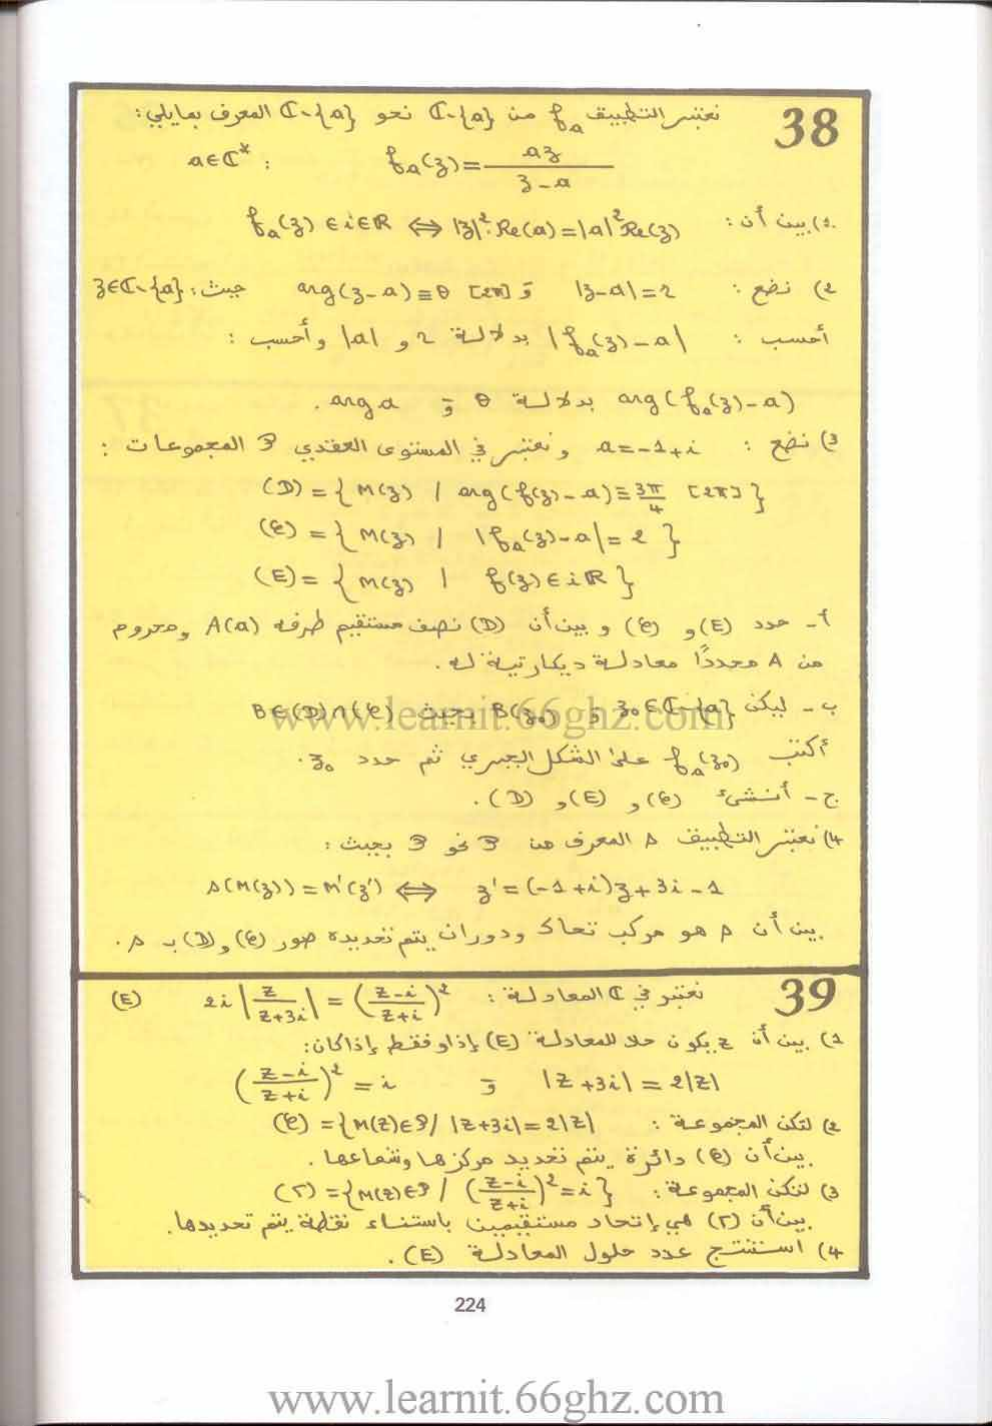 38
نعتبر التطبيق fₐ من ℂ-{a} نحو ℂ-{a} المعرف بمايلي:
a∈ℂ* : fₐ(z) = az/(z-a)
1) بين أن: fₐ(z) ∈ iℝ ⇔ |z|².Re(a) = |a|²Re(z)
2) نضع: |z-a| = r و arg(z-a) ≡ θ [2π] حيث: z∈ℂ-{a}
أحسب: |fₐ(z)-a| بدلالة r و |a| وأحسب:
arg(fₐ(z)-a) بدلالة θ و arg a.
3) نضع: a = -1+i ونعتبر في المستوى العقدي 𝒫 المجموعات:
(D) = { M(z) / arg(f(z)-a) ≡ 3π/4 [2π] }
(𝒞) = { M(z) / |fₐ(z)-a| = 2 }
(E) = { M(z) / f(z) ∈ iℝ }
أ- حدد (E) و (𝒞) و بين أن (D) نصف مستقيم طرفه A(a) ومحروم
من A محددًا معادلة ديكارتية له.
ب- ليكن z₀∈ℂ-{a} و B(z₀) بحيث B∈(D)∩(𝒞)
أكتب fₐ(z₀) على الشكل الجبري ثم حدد z₀.
ج- أنشئ (𝒞) و (E) و (D).
4) نعتبر التطبيق s المعرف من 𝒫 نحو 𝒫 بحيث:
s(M(z)) = M'(z') ⇔ z' = (-1+i)z + 3i - 1
بين أن s هو مركب تحاك ودوران يتم تحديده صور (𝒞) و (D) ب s.
39
نعتبر في ℂ المعادلة: 2i|z/(z+3i)| = ((z-i)/(z+i))² (E)
1) بين أن z يكون حلا للمعادلة (E) إذا وفقط إذا كان:
|z+3i| = 2|z| و ((z-i)/(z+i))² = i
2) لتكن المجموعة: (𝒞) = {M(z)∈𝒫 / |z+3i| = 2|z|
بين أن (𝒞) دائرة يتم تحديد مركزها وشعاعها.
3) لتكن المجموعة: (Γ) = {M(z)∈𝒫 / ((z-i)/(z+i))² = i}
بين أن (Γ) هي إتحاد مستقيمين باستثناء نقطة يتم تحديدها.
4) استنتج عدد حلول المعادلة (E).
www.learnit.66ghz.com
224
www.learnit.66ghz.com